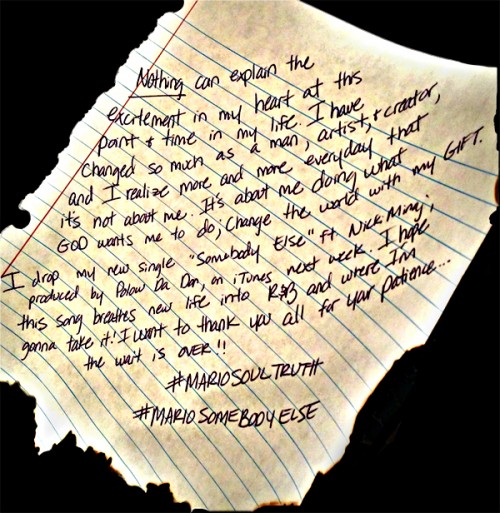 Nothing can explain the
excitement in my heart at this
point & time in my life. I have
changed so much as a man, artist, & creator,
and I realize more and more everyday that
it's not about me. It's about me doing what
GOD wants me to do; Change the world with my GIFT.
I drop my new single "Somebody Else" ft Nicki Minaj;
produced by Polow Da Don, on iTunes next week. I hope
this song breathes new life into R&B and where I'm
gonna take it! I want to thank you all for your patience...
the wait is OVER!!
#MARIOSOULTRUTH
#MARIOSOMEBODYELSE